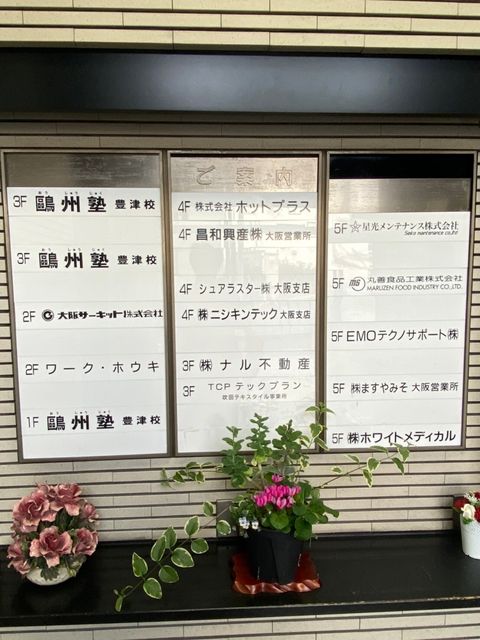 ご案内
3F 鷗州塾 豊津校
おう しゅう じゅく
3F 鷗州塾 豊津校
おう しゅう じゅく
2F 大阪サーキット株式会社
2F ワーク・ホウキ
1F 鷗州塾 豊津校
おう しゅう じゅく
4F 株式会社 ホットプラス
4F 昌和興産㈱ 大阪営業所
4F シュアラスター㈱ 大阪支店
4F ㈱ニシキンテック 大阪支店
3F ㈱ナル不動産
3F TCPテックプラン
吹田テキスタイル事業所
5F 星光メンテナンス株式会社
Seiko maintenance co.,ltd
5F MS 丸善食品工業株式会社
MARUZEN FOOD INDUSTRY CO.,LTD.
5F EMOテクノサポート㈱
5F ㈱ますやみそ 大阪営業所
5F ㈱ホワイトメディカル